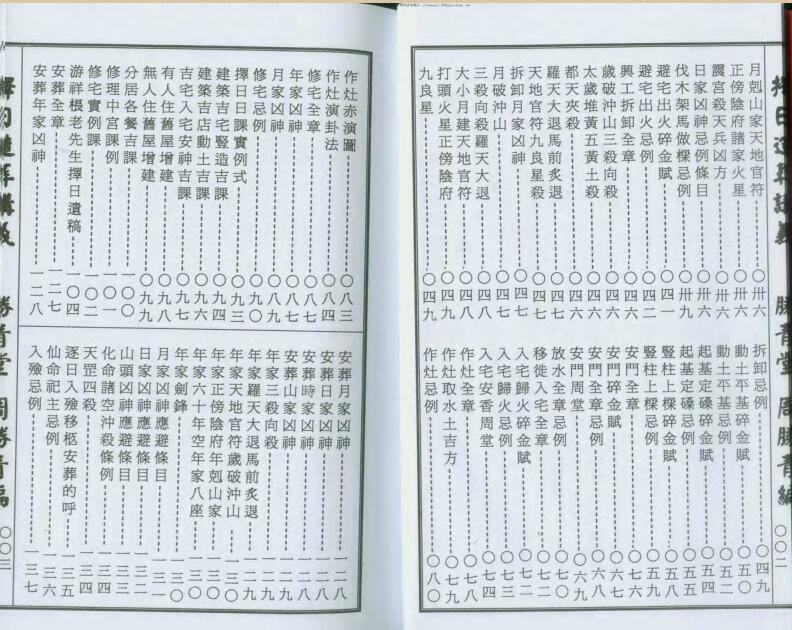 月剋山家天地官符 〇卅六
正傍陰府諸家火星 〇卅六
震宮殺天兵凶方 〇卅六
日家凶神忌例條目 〇卅六
伐木架馬做樑忌例 〇卅九
避宅出火碎金賦 〇四一
避宅出火忌例 〇四二
興工拆卸全章 〇四六
歲破沖山三殺向殺 〇四六
太歲堆黃五黃土殺 〇四六
都天夾殺 〇四六
羅天大退馬前炙退 〇四六
天地官符九良星殺 〇四七
拆卸月家凶神 〇四七
月破沖山 〇四八
三殺向殺羅天大退 〇四八
大小月建天地官符 〇四八
打頭火星正傍陰府 〇四九
九良星 〇四九
拆卸忌例 〇四九
動土平基碎金賦 〇五〇
動土平基忌例 〇五二
起基定磉碎金賦 〇五四
起基定磉忌例 〇五五
豎柱上樑碎金賦 〇五八
豎柱上樑忌例 〇五九
安門全章 〇六七
安門碎金賦 〇六七
安門全章忌例 〇六八
安門周堂 〇六九
放水全章忌例 〇七〇
移徙入宅全章 〇七二
入宅歸火碎金賦 〇七二
入宅歸火忌例 〇七三
入宅安香周堂 〇七四
作灶全章 〇七八
作灶取水土吉方 〇七九
作灶忌例 〇八〇
勝青堂 周勝青編 〇〇二
作灶赤演圖 〇八三
作灶演卦法 〇八四
修宅全章 〇八七
年家凶神 〇八七
月家凶神 〇八九
修宅忌例 〇九〇
擇日日課實例式 〇九三
建築吉宅豎造吉課 〇九四
建築吉店動土吉課 〇九六
吉宅入宅安神吉課 〇九七
有人住舊屋增建 〇九八
無人住舊屋增建 〇九九
分居各餐吉課 一〇〇
修理中宮課例 一〇一
修宅實例課 一〇二
游祥根老先生擇日遺稿 一〇四
安葬全章 一二七
安葬年家凶神 一二八
安葬月家凶神 一二八
安葬日家凶神 一二八
安葬時家凶神 一二九
安葬山家凶神 一二九
年家三殺向殺 一二九
年家羅天大退馬前炙退 一二九
年家天地官符歲破沖山 一三〇
年家正傍陰府年剋山家 一三〇
年家六十年空年家八座 一三〇
年家劍鋒 一三〇
月家凶神應避條目 一三一
日家凶神應避條目 一三二
山頭凶神應避條目 一三三
化命諸空沖殺條例 一三四
天罡四殺 一三四
逐日入殮移柩安葬的呼 一三五
仙命祀主忌例 一三六
入殮忌例 一三七
勝青堂 周勝青編 〇〇三